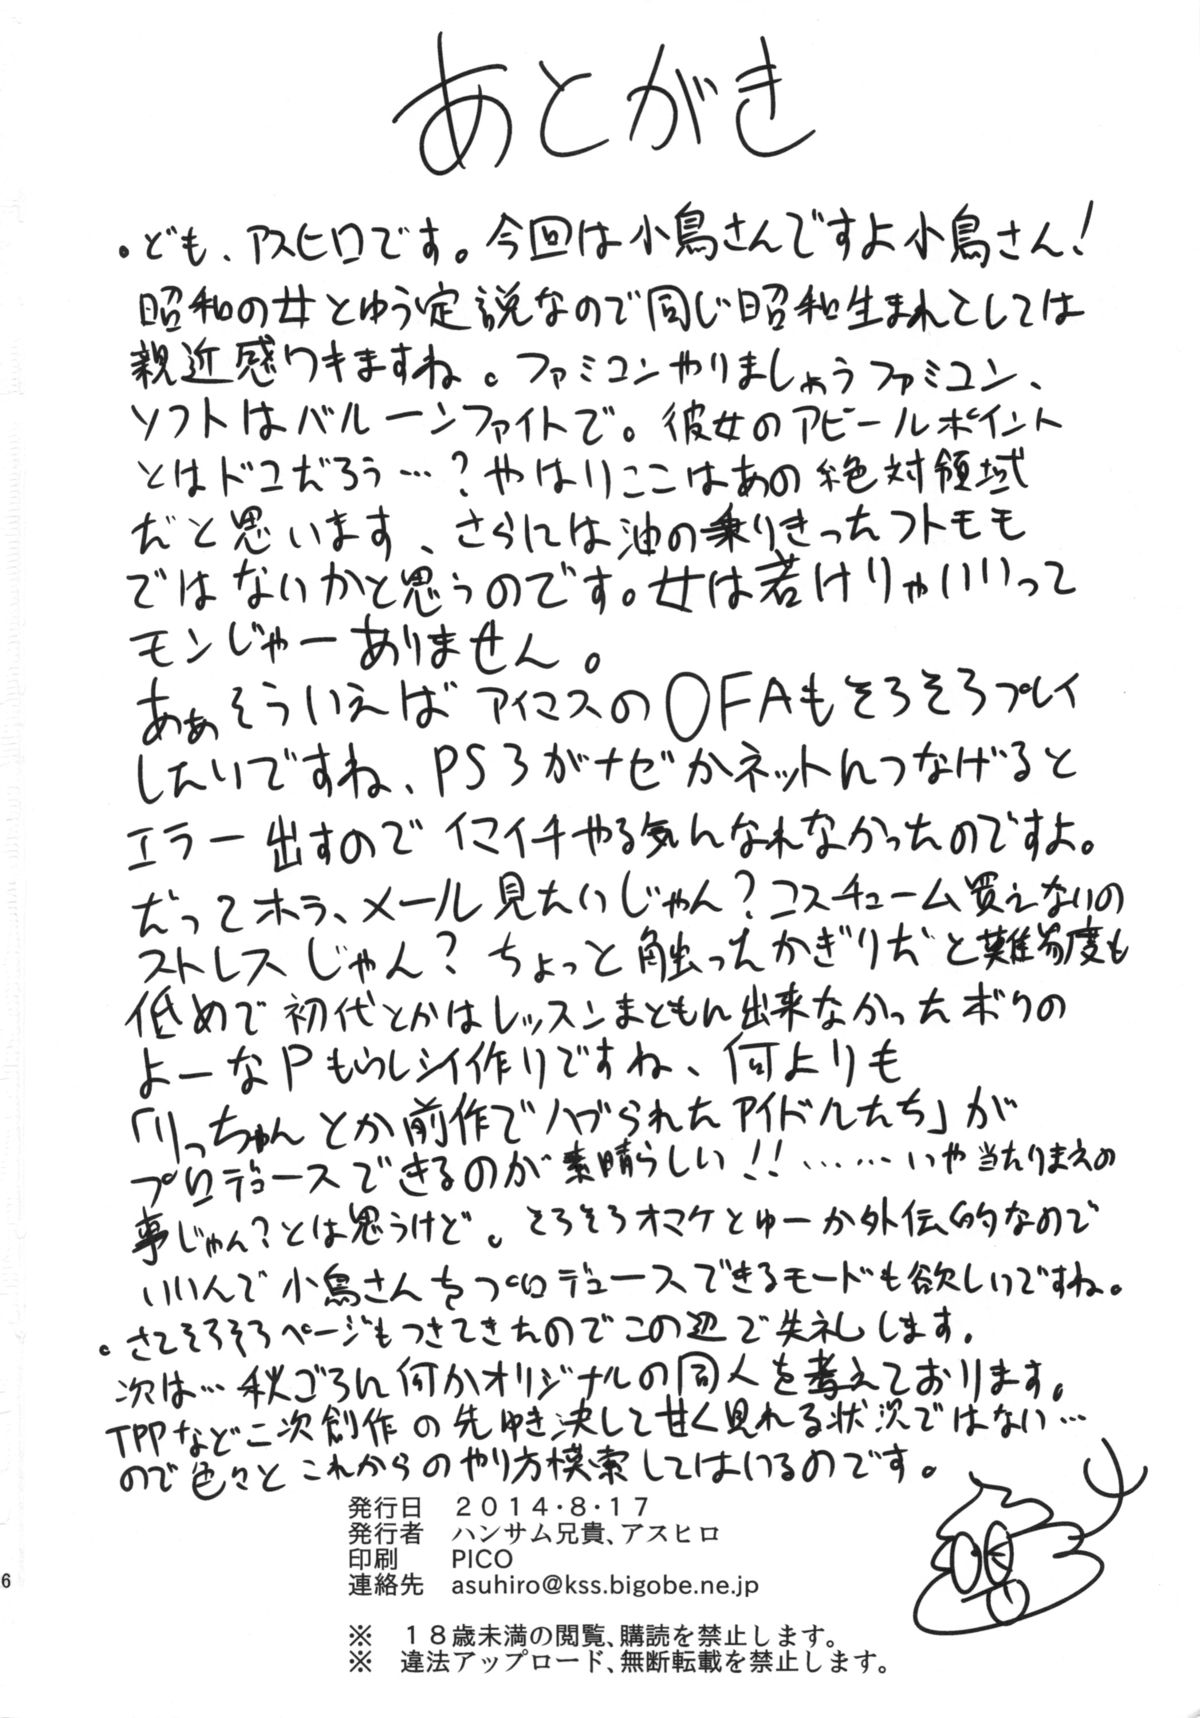 あとがき
・ども、アスヒロです。今回は小鳥さんですよ小鳥さん!
昭和の女とゆう定説なので同じ昭和生まれとしては
親近感ワキますね。ファミコンやりましょうファミコン、
ソフトはバルーンファイトで。彼女のアピールポイント
とはドコだろう…?やはりここはあの絶対領域
だと思います、さらには油の乗りきったフトモモ
ではないかと思うのです。女は若けりゃいいって
モンじゃーありません。
あぁそういえばアイマスのOFAもそろそろプレイ
したいですね、PS3がナゼかネットにつなげると
エラー出すのでイマイチやる気になれなかったのですよ。
だってホラ、メール見たいじゃん?コスチューム買えないの
ストレスじゃん?ちょっと触ったかぎりだと難易度も
低めで初代とかはレッスンまともに出来なかったボクの
よーなPもうれシイ作りですね、何よりも
「りっちゃんとか前作でハブられたアイドルたち」が
プロデュースできるのが素晴らしい!!……いや当たりまえの
事じゃん?とは思うけど。そろそろオマケとゆーか外伝的なので
いいんで小鳥さんをプロデュースできるモードも欲しいですね。
・さてそろそろページもつきてきたのでこの辺で失礼します。
次は…秋ごろに何かオリジナルの同人を考えております。
TPPなど二次創作の先ゆき決して甘く見れる状況ではない…
ので色々とこれからのやり方模索してはいるのです。
発行日 2014・8・17
発行者 ハンサム兄貴、アスヒロ
印刷 PICO
連絡先 asuhiro@kss.bigobe.ne.jp
※ 18歳未満の閲覧、購読を禁止します。
※ 違法アップロード、無断転載を禁止します。
6